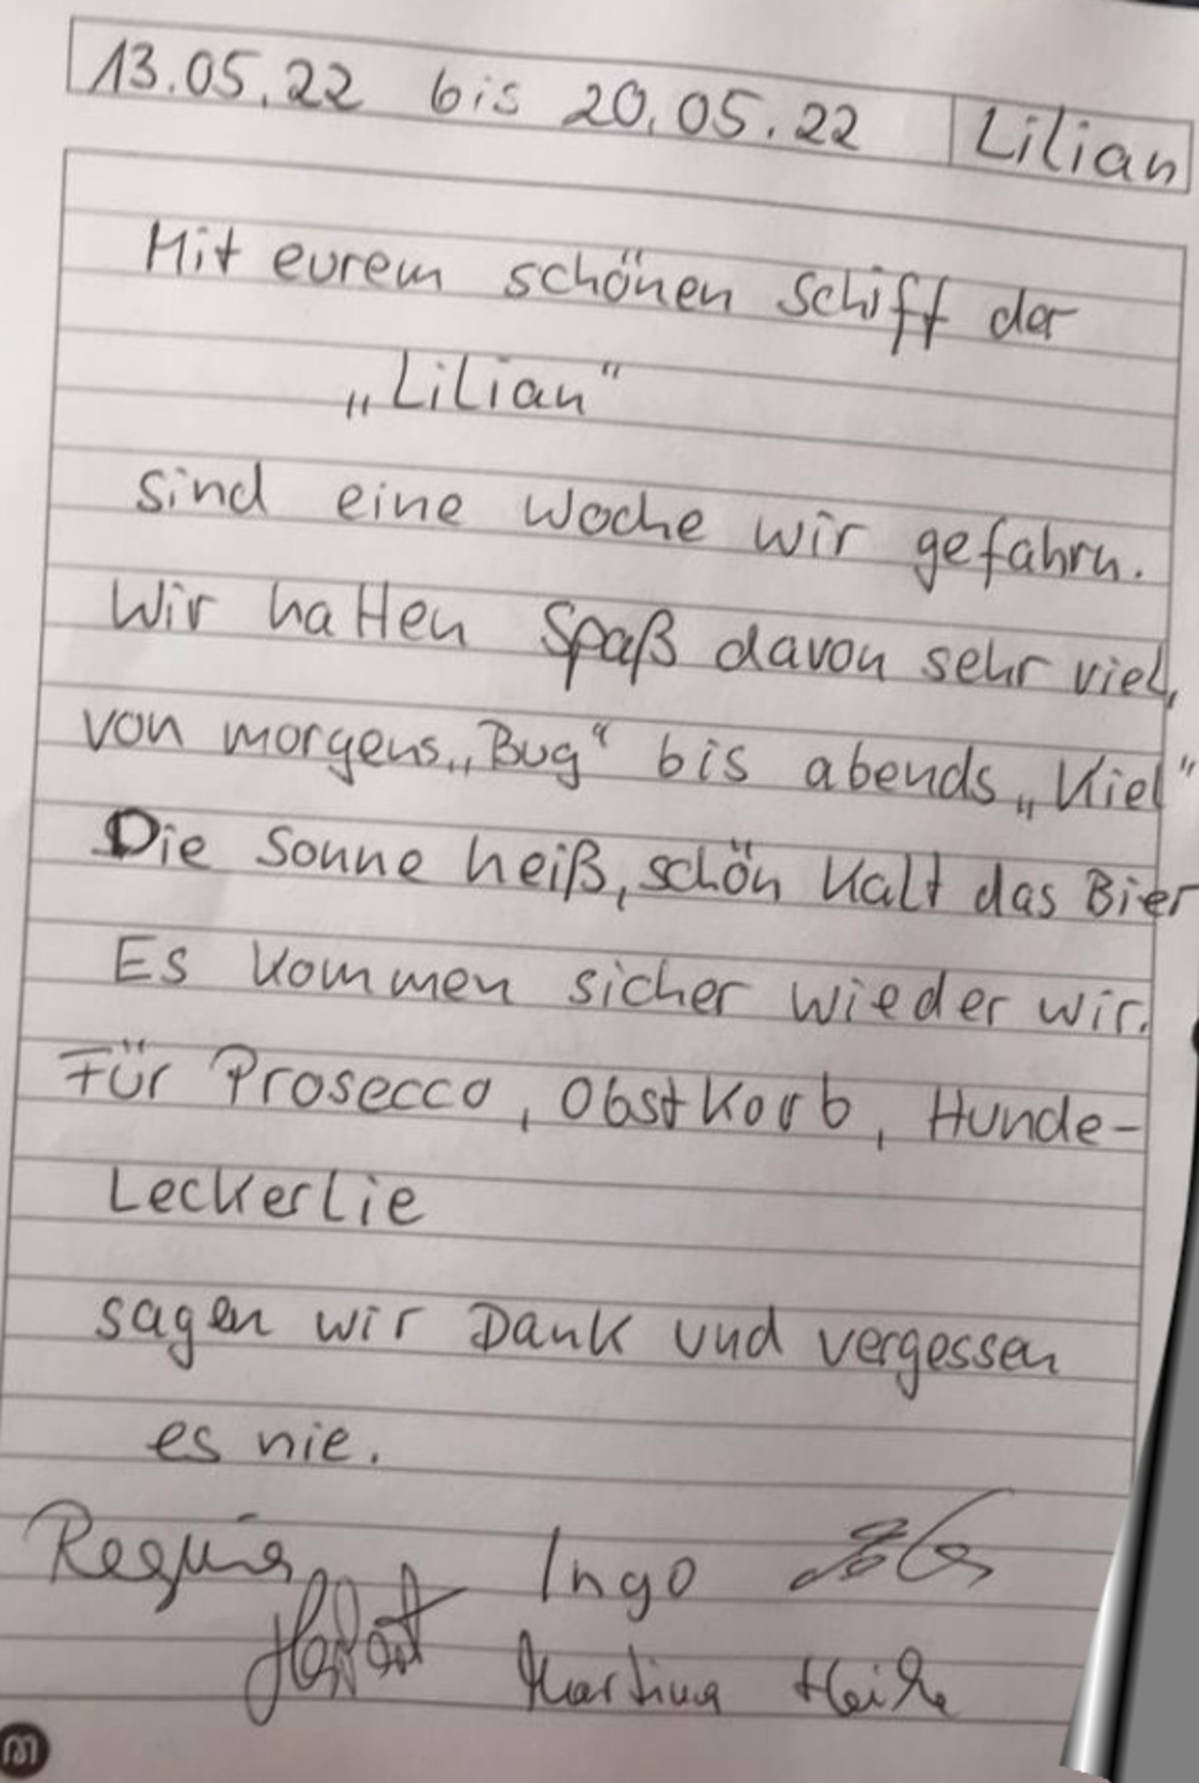 13.05.22 bis 20.05.22 Lilian
Mit eurem schönen Schiff der
„Lilian“
sind eine Woche wir gefahrn.
Wir hatten Spaß davon sehr viel,
von morgens „Bug“ bis abends „Kiel“
Die Sonne heiß, schön kalt das Bier
Es kommen sicher wieder wir.
Für Prosecco, Obstkorb, Hunde-
Leckerlie
sagen wir Dank und vergessen
es nie.
Regina Ingo
Martina Heike
m